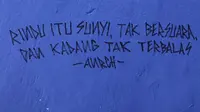 RINDU ITU SUNYI, TAK BERSUARA,
DAN KADANG TAK TERBALAS